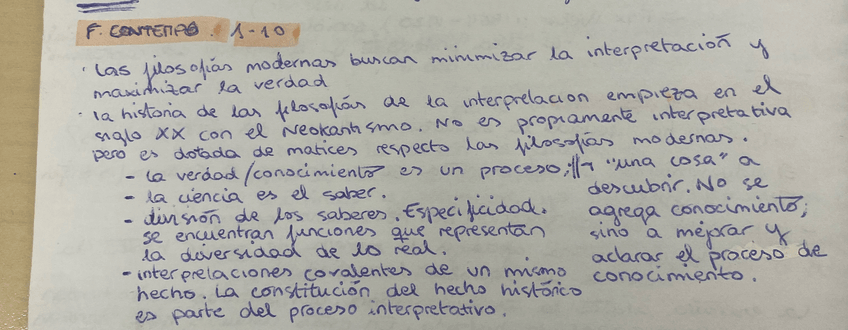 F. CONTEMPO. 1-10
· Las filosofías modernas buscan minimizar la interpretación y
maximizar la verdad
· la historia de las filosofías de la interpretacion empieza en el
siglo XX con el Neokantismo. No es propiamente interpretativa
pero es dotada de matices respecto las filosofías modernas.
- la verdad/conocimiento es un proceso, "una cosa" a
descubrir. No se
agrega conocimiento;
sino a mejorar y
aclarar el proceso de
conocimiento.
- la ciencia es el saber.
- división de los saberes. Especificidad.
se encuentran funciones que representan
la diversidad de lo real.
- interpretaciones covalentes de un mismo
hecho. La constitución del hecho histórico
es parte del proceso interpretativo.